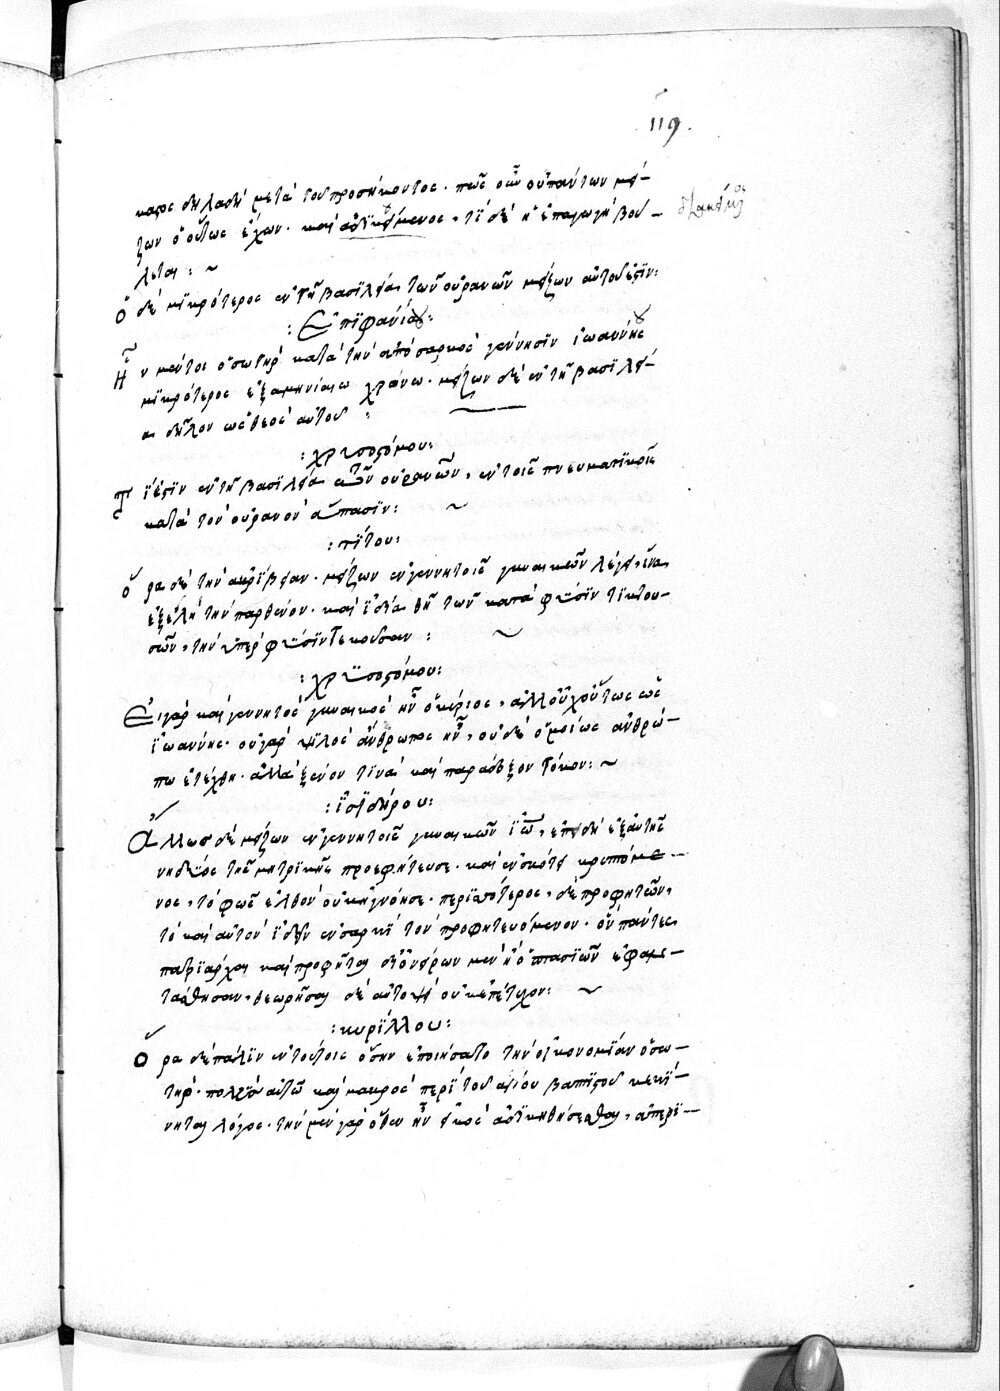 119.
καιος δηλαδὴ μετὰ τοῦ προσήκοντος· πῶς οὖν οὐ πάντων μεί-
ζων ὁ οὕτως ἔχων· καὶ ἀδικούμενος, τί δὲ ἡ ἐπαγωγὴ βού-
λεται: ~
Ὁ δὲ μικρότερος ἐν τῇ βασιλείᾳ τῶν οὐρανῶν μείζων αὐτοῦ ἐστίν:
:Ἐπιφανίου:
Ἦν μέντοι ὁ σωτὴρ κατὰ τὴν ἀπὸ σαρκὸς γέννησιν ἰωάννου
μικρότερος ἑξαμηνιαίω χρόνω· μείζων δὲ ἐν τῇ βασιλεί-
αι δῆλον ὡς θεὸς αὐτοῦ:
:χρυσοστόμου:
τίς ἐστιν ἐν τῇ βασιλείᾳ τῶν οὐρανῶν, ἐν τοῖς πνευματικοῖς
κατὰ τὸν οὐρανὸν ἅπασιν: ~
:τίτου:
ὅρα δὲ τὴν ἀκρίβειαν· μείζων ἐν γεννητοῖς γυναικῶν λέγει, ἵνα
ἐξέλῃ τὴν παρθένον· καὶ τῶν κατὰ φύσιν τικτου-
σῶν, τὴν ὑπὲρ φύσιν τεκοῦσαν: ~
:χρυσοστόμου:
Εἰ γὰρ καὶ γεννητὸς γυναικὸς ἦν ὁ κύριος, ἀλλ' οὐχ οὕτως ὡς
ἰωάννης· οὐ γὰρ ψιλὸς ἄνθρωπος ἦν, οὐδὲ ὁμοίως ἀνθρώ-
πω ἐτέχθη· ἀλλὰ ξένον τινὰ καὶ παράδοξον τόκον: ~
:ἰσιδώρου:
Ἄλλως δὲ μείζων ἐν γεννητοῖς γυναικῶν ἰῶ, ἐπειδὴ ἐξ αὐτῆς
νηδύος τῆς μητρικῆς προεφήτευσε· καὶ ἐν σκότει κρυπτόμε-
νος, τὸ φῶς ἐλθὸν οὐκ ἠγνόησε· περισσότερος, δὲ προφητῶν,
τὸ καὶ αὐτὸν ἰδεῖν ἐν σαρκὶ τὸν προφητευόμενον· ὃν πάντες
πατριάρχαι καὶ προφῆται δι' ὀνείρων μὲν ἢ ὀπτασιῶν ἐφαντα-
ς
τάσθησαν, θεωρῆσαι δὲ αὐτοψεὶ οὐκ ἐπέτυχον: ~
:κυρίλλου:
Ὅρα δὲ πάλιν ἐν τούτοις ὅσην ἐποιήσατο τὴν οἰκονομίαν ὁ σω-
τήρ· πολὺς αὐτῶ καὶ μακρὸς περὶ τοῦ ἁγίου βαπτιστοῦ κεκί-
νηται λόγος· τὴν μὲν γὰρ ὅθεν ἦν εἰκὸς ἀδικηθήσεσθαι, ἀπερι-